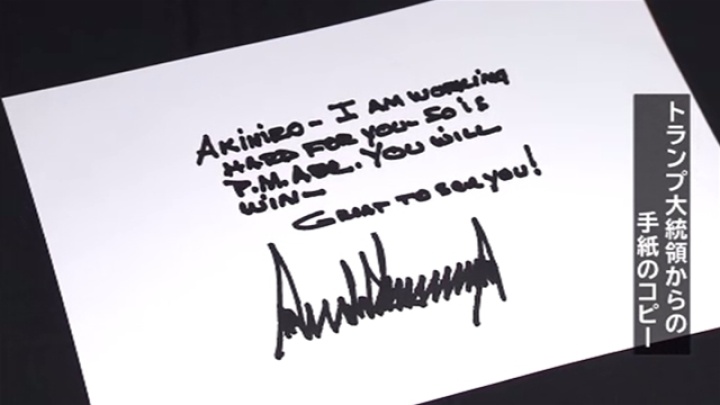 AKIHIRO – I AM WORKING
HARD FOR YOU – SO IS
P.M. ABE. YOU WILL
WIN –
GREAT TO SEE YOU!
トランプ大統領からの
手紙のコピー